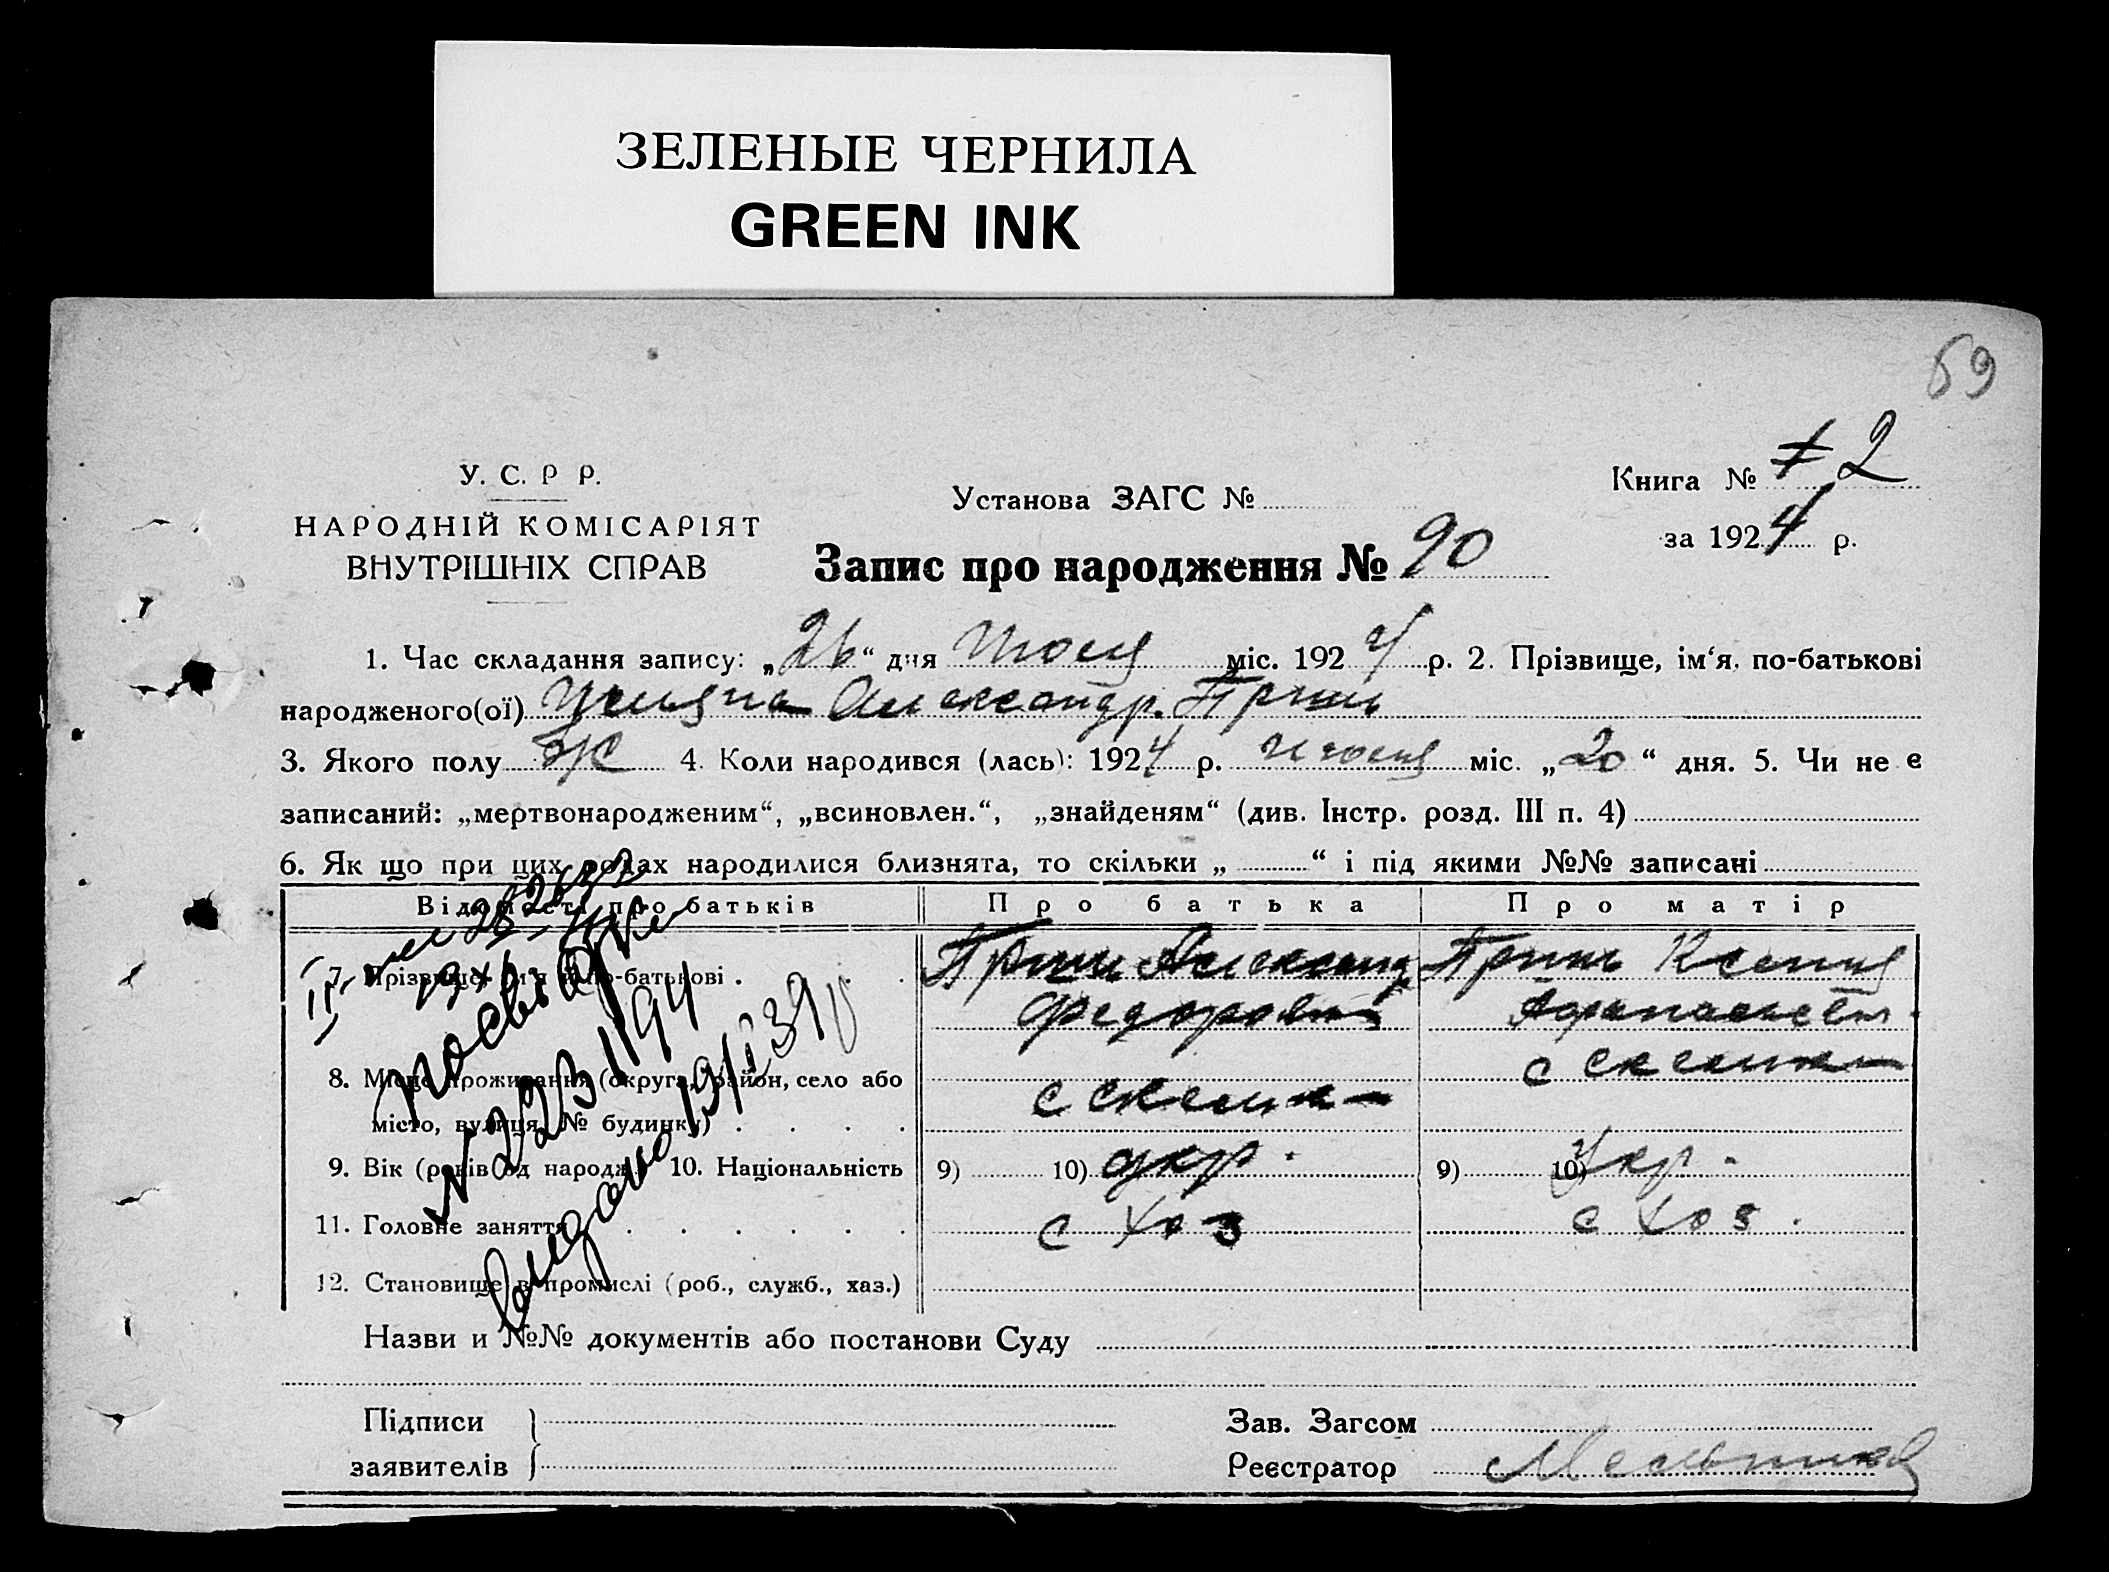 ЗЕЛЕНЫЕ ЧЕРНИЛА
GREEN INK
69
У. С. Р Р.
НАРОДНІЙ КОМІСАРІЯТ
ВНУТРІШНІХ СПРАВ
Установа ЗАГС №
Запис про народження № 90
Книга № 2
за 1924 р.
1. Час складання запису: „26“ дня Июля міс. 1924 р. 2. Прізвище, ім‘я, по-батькові
народженого(ої) Улияна Александр. Гринь
3. Якого полу ж 4. Коли народився (лась): 1924 р. июля міс. „20“ дня. 5. Чи не є
записаний: „мертвонародженим“, „всиновлен.“, „знайденям“ (див. Інстр. розд. III п. 4)
6. Як що при цих родах народилися близнята, то скільки „ “ і під якими №№ записані
Відомості про батьків Про батька Про матір
7. Прізвище, ім‘я по-батькові Гринь Александ Гринь Ксения
Федорович Афанасьевн.
8. Місце проживання (округа, район, село або с с
місто, вулиця, № будинку)
9. Вік (років від народж.) 10. Національність 9) 10) укр. 9) 10) укр.
11. Головне заняття с хоз с хоз.
12. Становище в промислі (роб., служб., хаз.)
№ 223/194
видано 13/I 39
Назви и №№ документів або постанови Суду
Підписи
заявителів
Зав. Загсом
Реєстратор